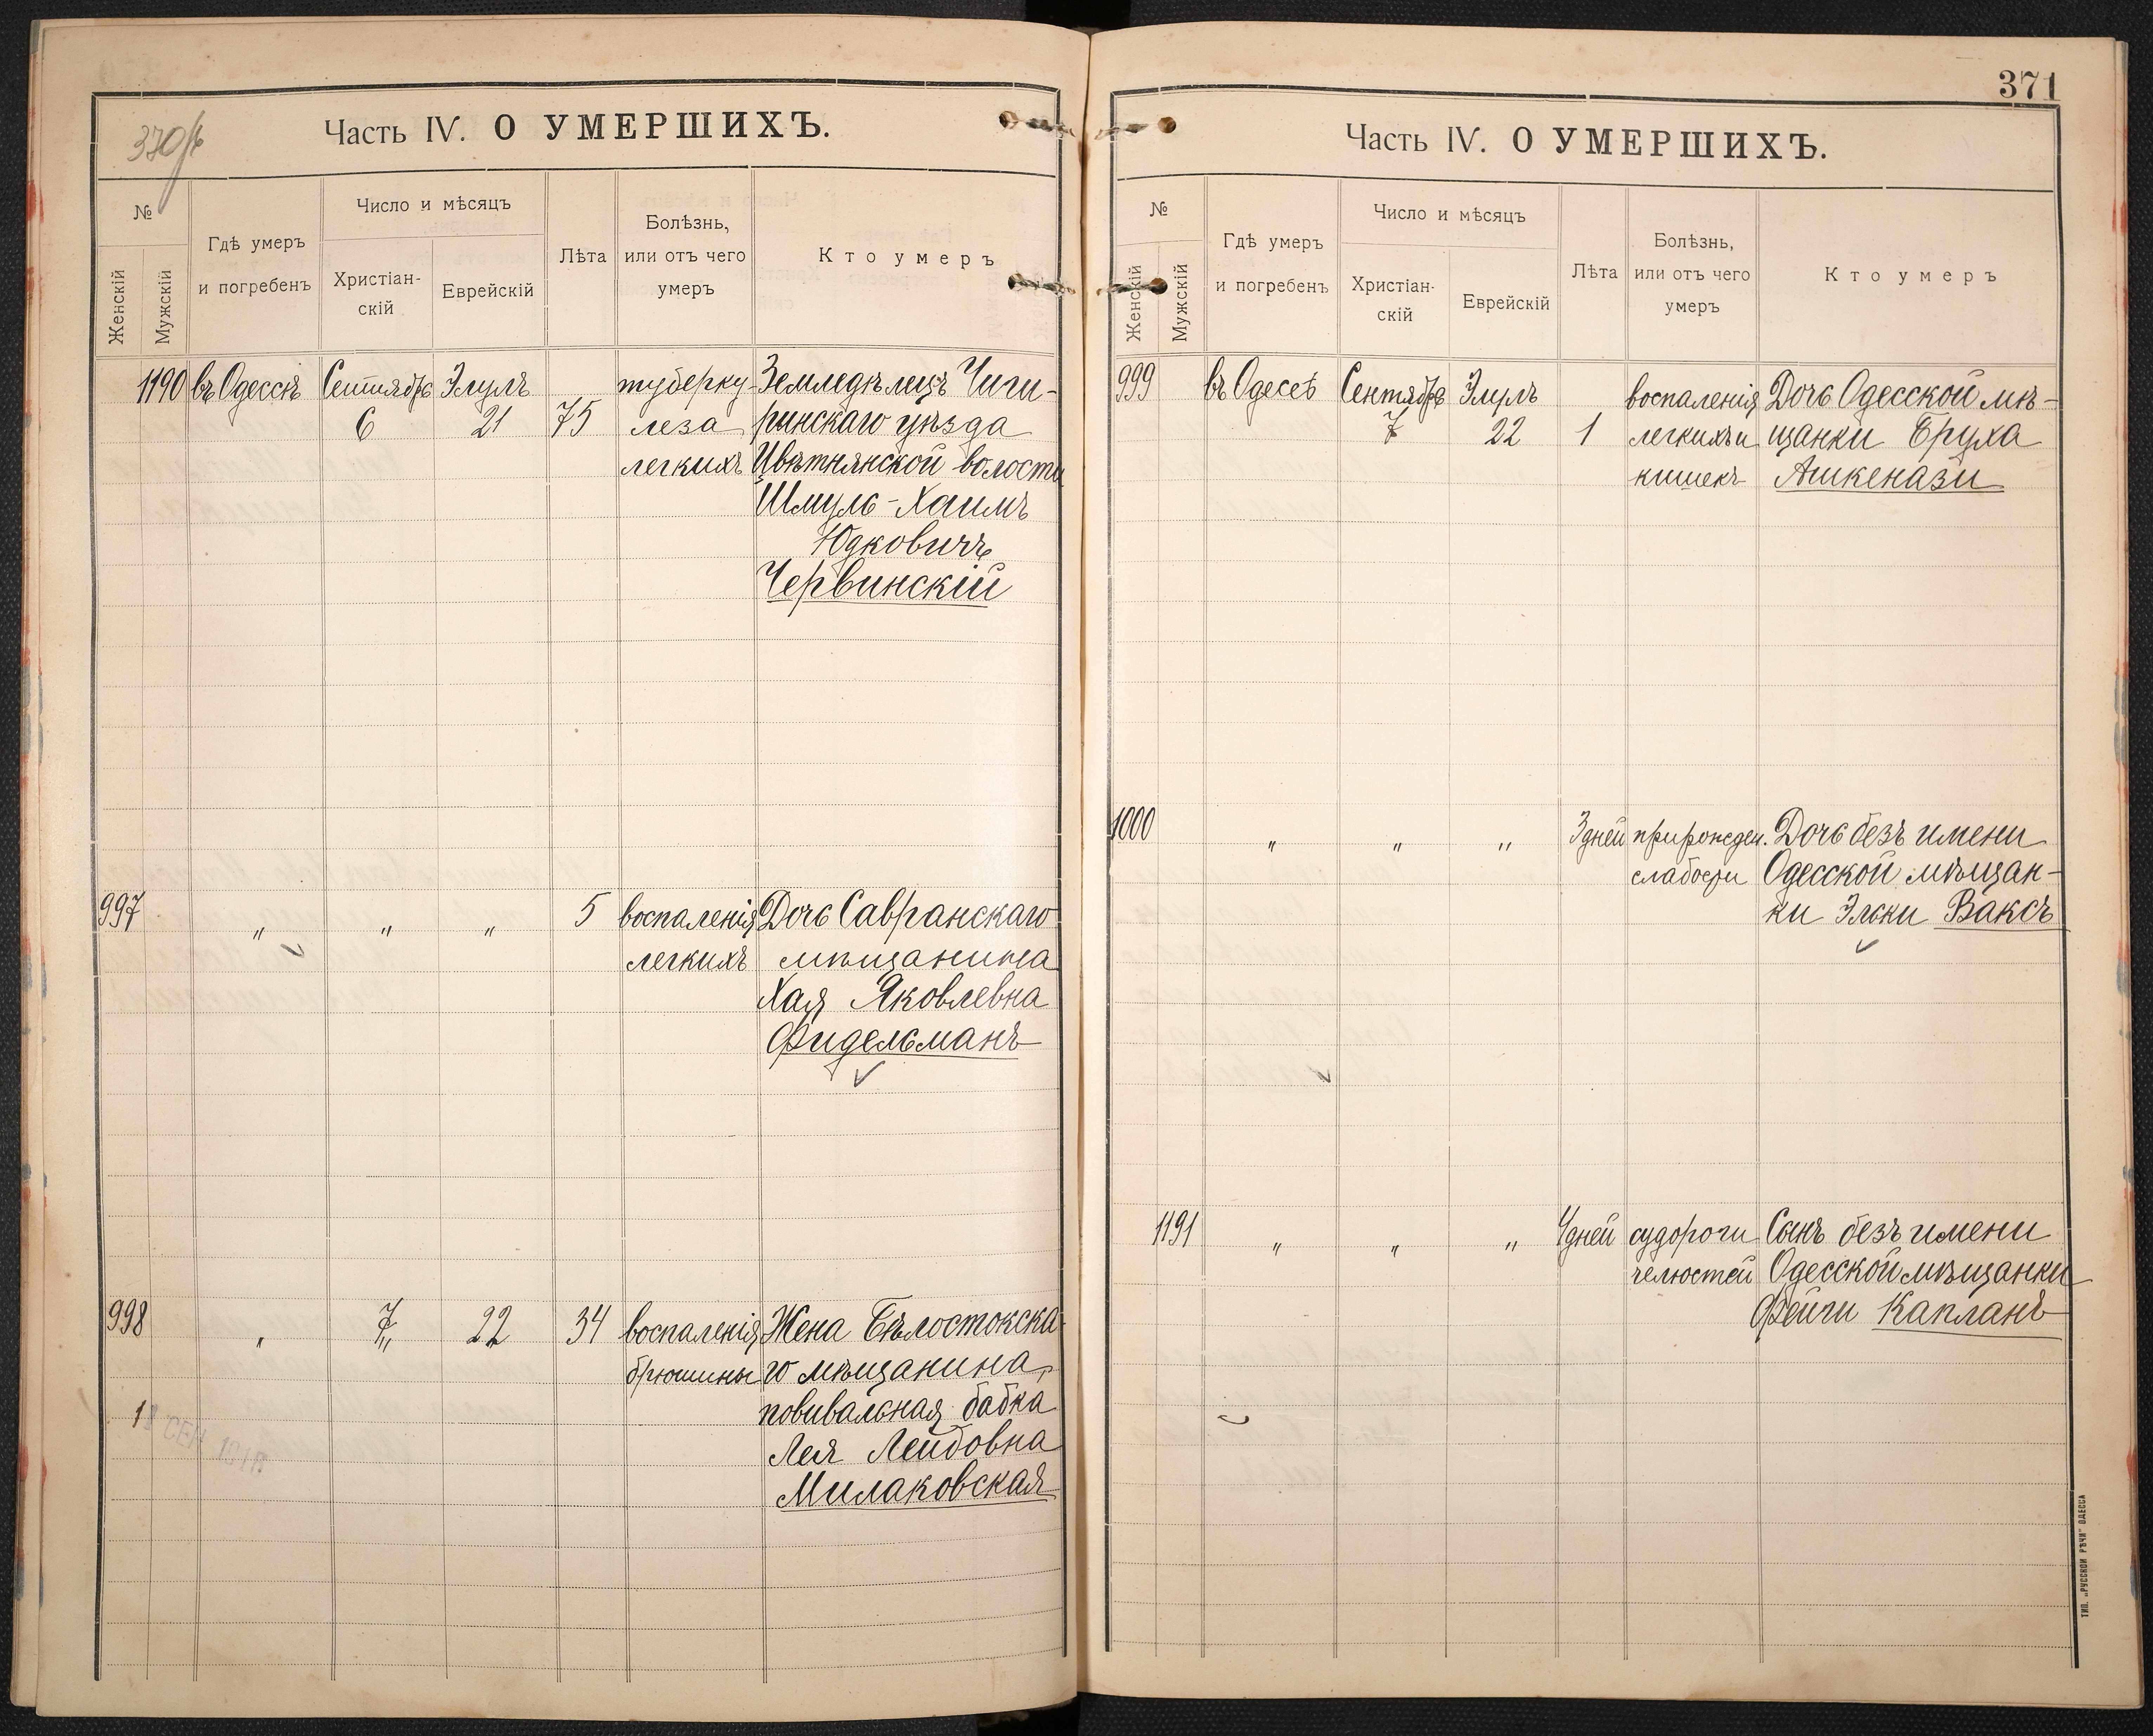 370/б
Часть IV. О УМЕРШИХЪ.
№
Женскій
Мужскій
Гдѣ умеръ
и погребенъ
Число и мѣсяцъ
Христіан-
скій
Еврейскій
Лѣта
Болѣзнь,
или отъ чего
умеръ
Кто умеръ
1190 въ Одессѣ Сентябрь Элулъ туберку- Земледѣлецъ Чиги-
6 21 75 леза ринскаго уѣзда
легкихъ Цвѣтнянской волости
Шмуль-Хаимъ
Юдковичъ
Червинскій
997 " " " 5 воспаленія Дочь Савранскаго
легкихъ мѣщанина
Хая Яковлевна
Фидельманъ
998 " 7 " 22 34 воспаленія Жена Бѣлостокска-
брюшины го мѣщанина,
повивальная бабка
Лея Лейбовна
Милаковская
СЕН
371
Часть IV. О УМЕРШИХЪ.
№
Женскій
Мужскій
Гдѣ умеръ
и погребенъ
Число и мѣсяцъ
Христіан-
скій
Еврейскій
Лѣта
Болѣзнь,
или отъ чего
умеръ
Кто умеръ
999 въ Одессѣ Сентябрь Элулъ воспаленія Дочь Одесской мѣ-
7 22 1 легкихъ и щанки Бруха
кишекъ Ашкенази
1000 " " " 3 дней прирожден. Дочь безъ имени
слабости Одесской мѣщан-
ки Эльки Ваксъ
1191 " " " 4 дней судороги Сынъ безъ имени
челюстей Одесской мѣщанки
Фейги Капланъ
ТИП. „РУССКОЙ РѢЧИ" ОДЕССА